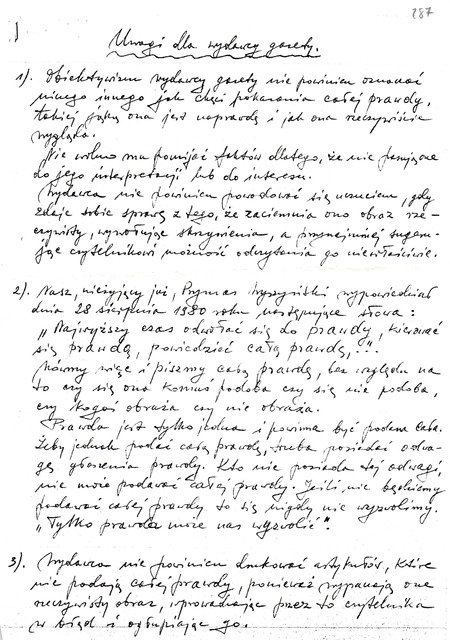 287
Uwagi dla wydawcy gazety.
1). Obiektywizm wydawcy gazety nie powinien oznaczać
niczego innego jak chęci pokazania całej prawdy,
takiej jaką ona jest naprawdę i jak ona rzeczywiście
wygląda.
Nie wolno mu pomijać faktów dlatego, że nie pasują one
do jego interpretacji lub do interesu.
Wydawca nie powinien powodować się uczuciem, gdy
zdaje sobie sprawę z tego, że zaciemnia ono obraz rze-
czywisty, wywołując skrzywienia, a przynajmniej sugeru-
jąc czytelnikowi możność odczytania go niewłaściwie.
2). Nasz, nieżyjący już, Prymas Wyszyński wypowiedział
dnia 28 sierpnia 1980 roku następujące słowa:
"Najwyższy czas odwołać się do prawdy, kierować
się prawdą, powiedzieć całą prawdę,!"..
Mówmy więc i piszmy całą prawdę, bez względu na
to czy się ona komuś podoba czy się nie podoba,
czy kogoś obraża czy nie obraża.
Prawda jest tylko jedna i powinna być podana cała.
Żeby jednak podać całą prawdę, trzeba posiadać odwa-
gę głoszenia prawdy. Kto nie posiada tej odwagi,
nie może podawać całej prawdy. Jeśli nie będziemy
podawać całej prawdy to się nigdy nie wyzwolimy.
"Tylko prawda może nas wyzwolić".
3). Wydawca nie powinien drukować artykułów, które
nie podają całej prawdy, ponieważ wypaczają one
rzeczywisty obraz, wprowadzając przez to czytelnika
w błąd i ogłupiając go.